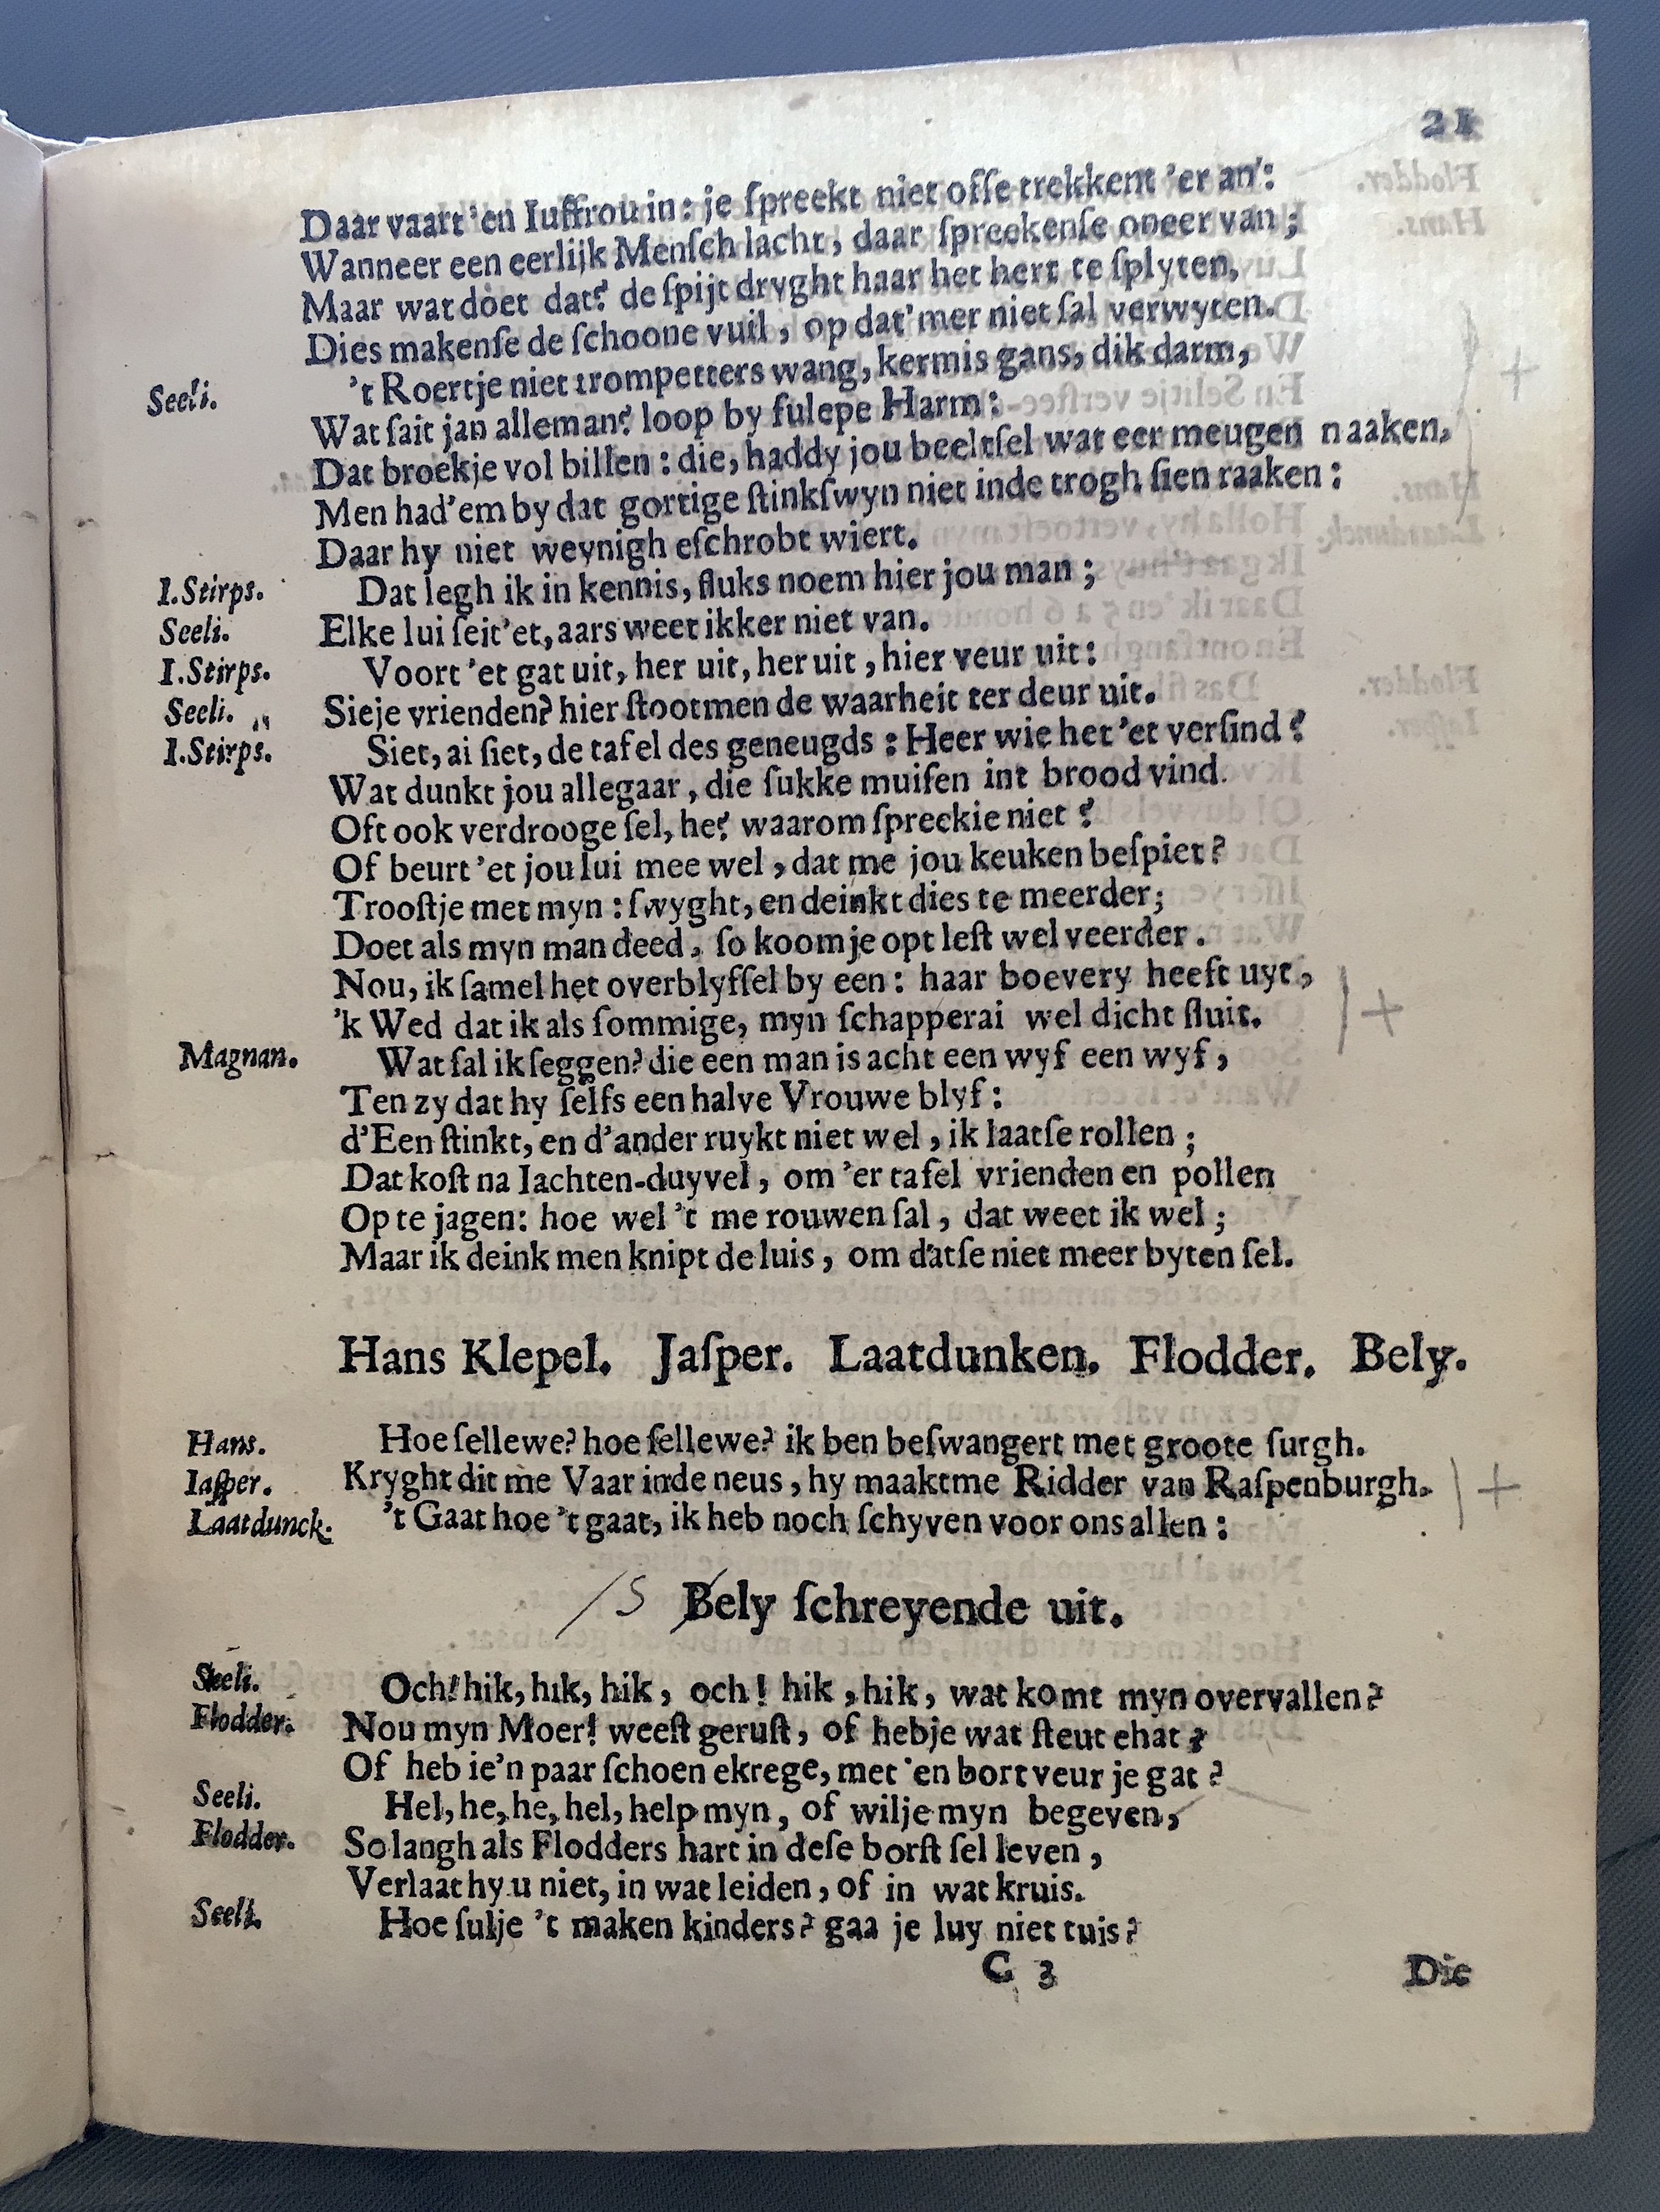 21
Daar vaart 'en Iuffrou in: je ſpreekt niet ofſe trekkent 'er an':
Wanneer een eerlijk Menſch lacht, daar ſpreekenſe oneer van;
Maar wat doet dat? de ſpijt dryght haar het hert te ſplyten,
Dies makenſe de ſchoone vuil, op dat'mer niet ſal verwyten.
Seeli. 't Roertje niet trompetters wang, kermis gans, dik darm,
Wat ſait jan alleman? loop by fulepe Harm:
Dat broekje vol billen: die, haddy jou beeltſel wat eer meugen naaken,
Men had'em by dat gortige ſtinkſwyn niet inde trogh ſien raaken:
Daar hy niet weynigh eſchrobt wiert.
I.Stirps. Dat legh ik in kennis, fluks noem hier jou man;
Seeli. Elke lui ſeit'et, aars weet ikker niet van.
I.Stirps. Voort 'et gat uit, her uit, her uit, hier veur uit:
Seeli. Sieje vrienden? hier ſtootmen de waarheit ter deur uit.
I.Stirps. Siet, ai ſiet, de tafel des geneugds: Heer wie het 'et verſind?
Wat dunkt jou allegaar, die ſukke muiſen int brood vind.
Oft ook verdrooge ſel, he? waarom ſpreekie niet?
Of beurt 'et jou lui mee wel, dat me jou keuken beſpiet?
Trooſtje met myn: ſwyght, en deinkt dies te meerder;
Doet als myn man deed, ſo koom je opt leſt wel veerder.
Nou, ik ſamel het overblyfſel by een: haar boevery heeft uyt,
'k Wed dat ik als ſommige, myn ſchapperai wel dicht ſluit.
Magnan. Wat ſal ik ſeggen? die een man is acht een wyf een wyf,
Ten zy dat hy ſelfs een halve Vrouwe blyf:
d'Een ſtinkt, en d'ander ruykt niet wel, ik laatſe rollen;
Dat koſt na Iachten-duyvel, om 'er tafel vrienden en pollen
Op te jagen: hoe wel 't me rouwen ſal, dat weet ik wel;
Maar ik deink men knipt de luis, om datſe niet meer byten ſel.
Hans Klepel. Jaſper. Laatdunken. Flodder. Bely.
Hans. Hoe ſellewe? hoe ſellewe? ik ben beſwangert met groote ſurgh.
Iaſper. Kryght dit me Vaar inde neus, hy maakt me Ridder van Raſpenburgh.
Laatdunck. 't Gaat hoe 't gaat, ik heb noch ſchyven voor ons allen:
/S Bely ſchreyende uit.
Seeli. Och! hik, hik, hik, och! hik, hik, wat komt myn overvallen?
Flodder. Nou myn Moer! weeſt geruſt, of hebje wat ſteut ehat?
Of heb ie'n paar ſchoen ekrege, met 'en bort veur je gat?
Seeli. Hel, he, he, hel, help myn, of wilje myn begeven,
Flodder. So langh als Flodders hart in deſe borſt ſel leven,
Verlaat hy u niet, in wat leiden, of in wat kruis.
Seeli. Hoe ſulje 't maken kinders? gaa je luy niet tuis?
C 3 Die